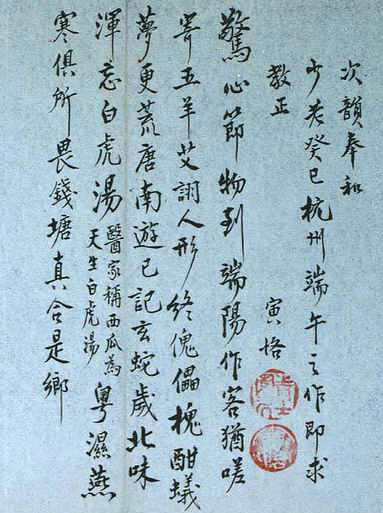 次韻奉和
少老癸巳杭州端午之作即求
教正 寅恪
驚心節物到端陽作客猶嗟
寄五羊艾詡人形終傀儡槐酣蟻
夢更荒唐南遊已記玄蛇歲北味
渾忘白虎湯醫家稱西瓜為天生白虎湯粵濕燕
寒俱所畏錢塘真合是鄉